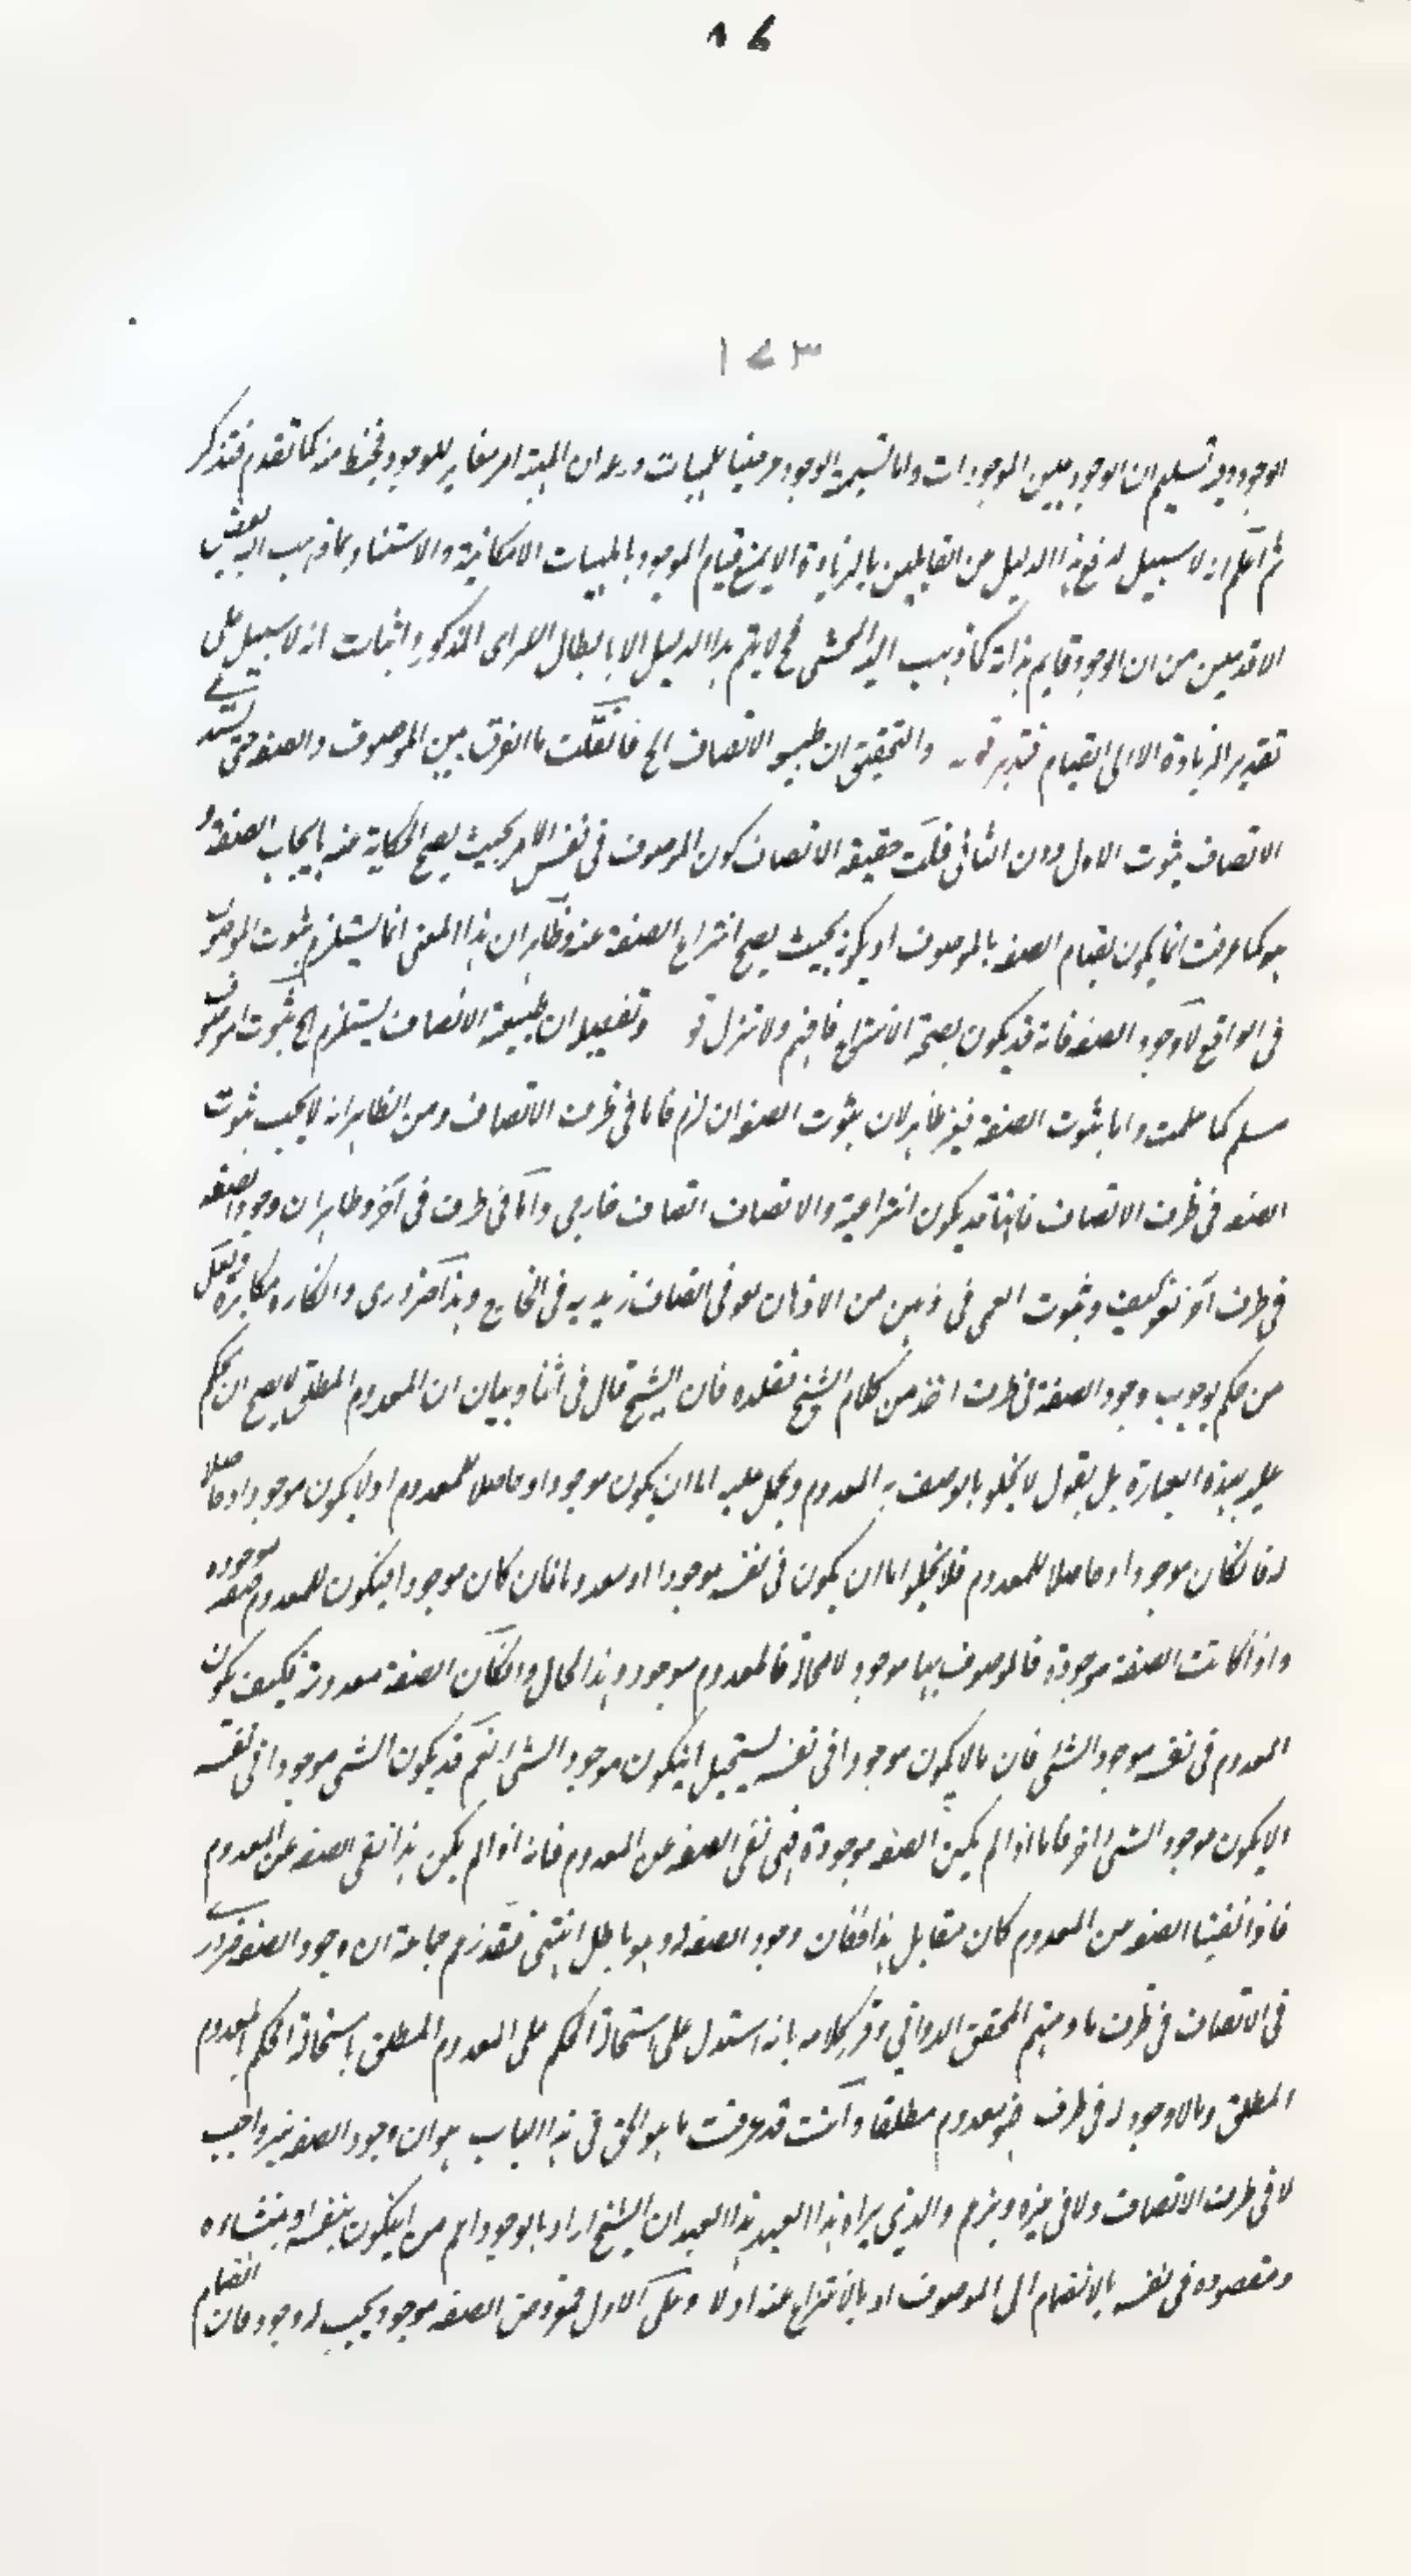 ٨٦
١٧٣
الوجود وبعد تسليم ان الوجود عين الموجودات واما تسمية الوجود عرضيا للمهيات ان المهية امر مغاير للوجود كما تقدم فتذكر
ثم اعلم انه لا سبيل لدفع هذا الدليل من القايلين بالزيادة الا بمنع قيام الوجود بالمهيات الامكانية والاستناد بما ذهب اليه بعض
الاقدمين من ان الوجود قايم بذاته كما ذهب اليه المحشى فح لا يتم هذا الدليل الا بابطال الراى المذكور واثبات انه لا سبيل على
تقدير الزيادة الا الى القيام فتدبر قوله والتحقيق ان طبيعة الاتصاف الخ فان قلت ما الفرق بين الموصوف والصفة حتى يستدعى
الاتصاف ثبوت الاول دون الثانى قلت حقيقة الاتصاف كون الموصوف فى نفس الامر بحيث يصح الحكاية عنه بايجاب الصفة و
هو كما عرفت انما يكون بقيام الصفة بالموصوف او بكونه بحيث يصح انتزاع الصفة عنه وظاهر ان هذا المعنى انما يستلزم ثبوت الموصوف
فى الواقع لا وجود الصفة فانه قد يكون بصحة الانتزاع فافهم ولا تزل قو وتفصيله ان طبيعة الاتصاف يستلزم الخ ثبوت الموصوف
مسلم كما علمت واما ثبوت الصفة فغير ظاهر لان ثبوت الصفة ان لزم فاما فى ظرف الاتصاف ومن الظاهر انه لا يجب ثبوت
الصفة فى ظرف الاتصاف فانها قد يكون انتزاعية والاتصاف اتصاف خارجى واما فى ظرف فى آخر وظاهر ان وجود الصفة
فى ظرف آخر لغو كيف وثبوت العمى فى ذهن من الاذهان لغو فى اتصاف زيد به فى الخارج وهذا ضرورى وانكاره مكابرة ولعل
من حكم بوجوب وجود الصفة فى ظرف اخذ من كلام الشيخ تقلده فان الشيخ قال فى اثناء بيان ان المعدوم المطلق لا يصح ان يحكم
عليه بهذه العبارة بل يقول لا يخلو ما يوصف به المعدوم ويحمل عليه اما ان يكون موجودا وحاصلا للمعدوم او لا يكون موجودا وحاصلا
له فان كان موجودا وحاصلا للمعدوم فلا يخلو اما ان يكون فى نفسه موجودا او معدوما فان كان موجودا فيكون للمعدوم صفة موجودة
واذا كانت الصفة موجودة فالموصوف بها موجود لا محالة فالمعدوم موجود وهذا محال وان كان الصفة معدومة فكيف يكون
المعدوم فى نفسه موجودا لشئ فان ما لا يكون موجودا فى نفسه يستحيل ان يكون موجودا لشئ نعم قد يكون الشئ موجودا فى نفسه
ولا يكون موجودا لشئ آخر فاما اذا لم يكن الصفة موجودة فهى نفى الصفة عن المعدوم فانه اذا لم يكن هذا نفى الصفة عن المعدوم
فاذا نفينا الصفة عن المعدوم كان مقابل هذا فكان وجود الصفة له وهو باطل انتهى فقد زعم جماعة ان وجود الصفة ضرورى
فى الاتصاف فى ظرف ما ومنهم المحقق الدوانى وقرر كلامه بانه استدل على استحالة الحكم على المعدوم المطلق باستحالة الحكم بالمعدوم
المطلق وما لا وجود له فى ظرف فهو معدوم مطلقا وانت قد عرفت ما هو الحق فى هذا الباب هو ان وجود الصفة غير واجب
لا فى ظرف الاتصاف ولا فى غيره والذى يراه هذا العبد ان الشيخ اراد بالوجود اعم من ان يكون بنفسه او بمنشائه
ومقصوده فى نفسه بالانضمام الى الموصوف او بالانتزاع عنه اولا وعلى الاول الصفة موجود يجب له وجود فان انضمام